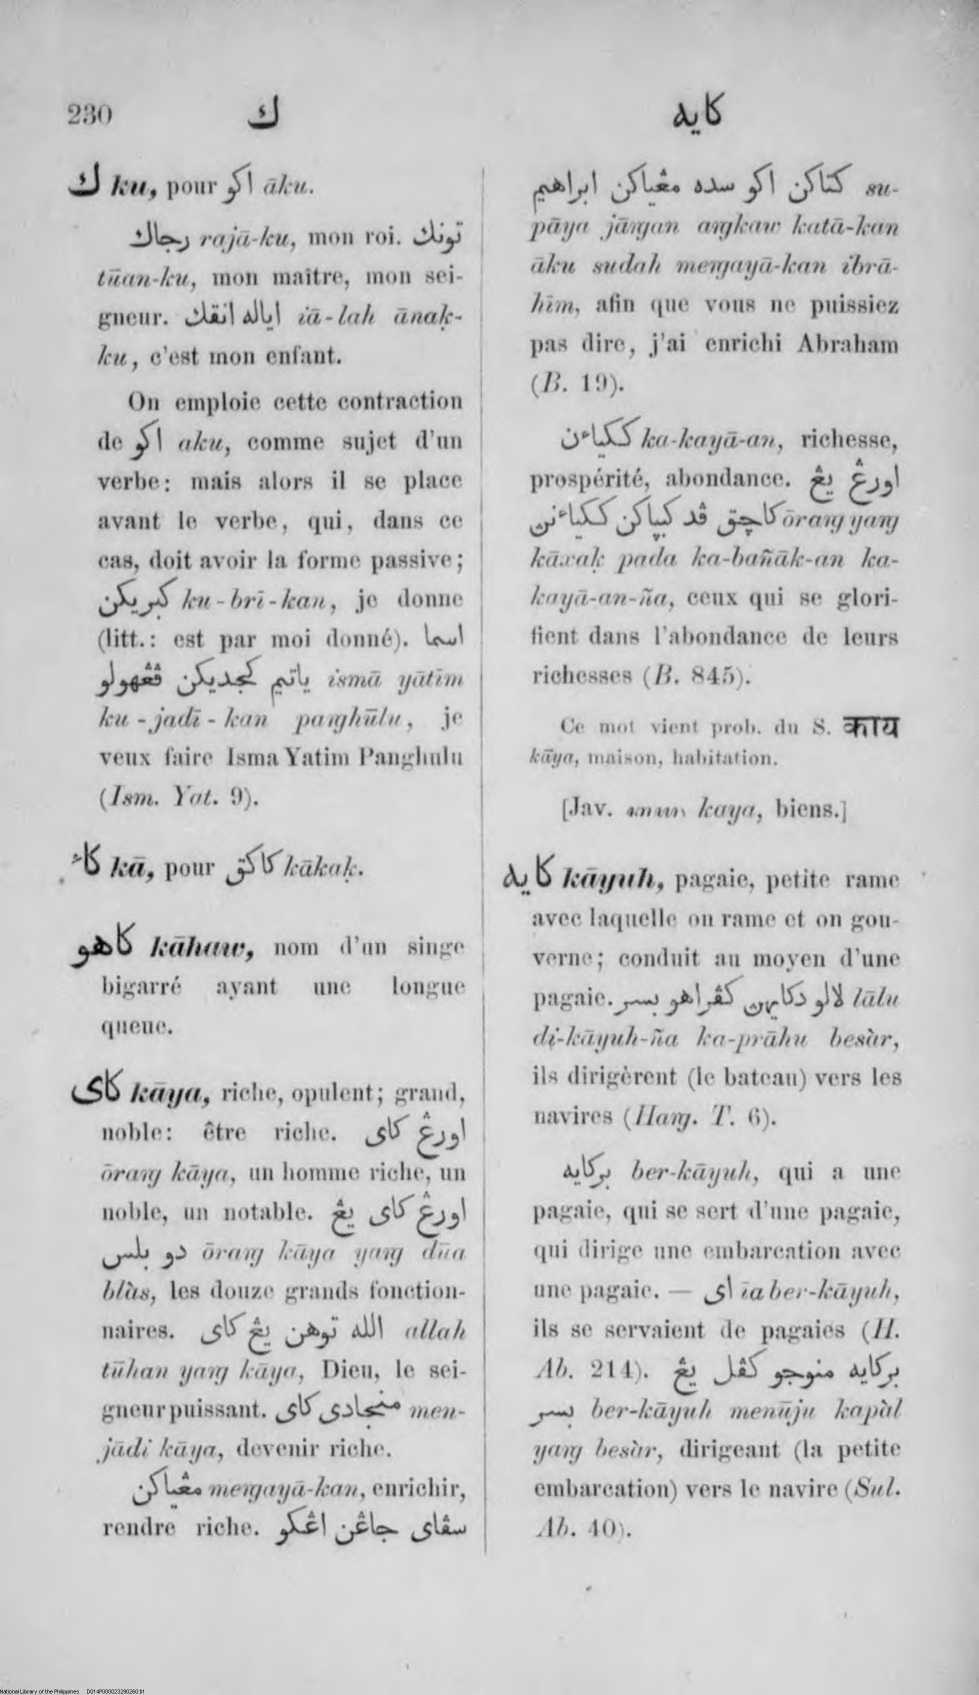 230 ك كايه
ك ku, pour اكو āku.
رجاك rajā-ku, mon roi. تونك
tūan-ku, mon maître, mon sei-
gneur. اياله انقك iā-lah ānaḳ-
ku, c'est mon enfant.
On emploie cette contraction
de اكو aku, comme sujet d'un
verbe: mais alors il se place
avant le verbe, qui, dans ce
cas, doit avoir la forme passive;
كبريكن ku-brī-kan, je donne
(litt.: est par moi donné). اسما
ياتيم كجديكن ڤڠهولو ismā yātīm
ku-jadī-kan paŋghūlu, je
veux faire Isma Yatim Panghulu
(Ism. Yat. 9).
كاء kā, pour كاكق kākaḳ.
كاهو kāhaw, nom d'un singe
bigarré ayant une longue
queue.
كاى kāya, riche, opulent; grand,
noble: être riche. اورڠ كاى
ōraŋ kāya, un homme riche, un
noble, un notable. اورڠ كاى يڠ
دو بلس ōraŋ kāya yaŋ dūa
blàs, les douze grands fonction-
naires. الله توهن يڠ كاى allah
tūhan yaŋ kāya, Dieu, le sei-
gneur puissant. منجادى كاى men-
jādi kāya, devenir riche.
مڠياكن meŋayā-kan, enrichir,
rendre riche. سڤاى جاڠن اڠكو
كتاكن اكو سده مڠياكن ابراهيم su-
pāya jāŋan aŋkaw katā-kan
āku sudah meŋayā-kan ibrā-
hīm, afin que vous ne puissiez
pas dire, j'ai enrichi Abraham
(B. 19).
ككياءن ka-kayā-an, richesse,
prospérité, abondance. اورڠ يڠ
كاچق ڤد كبياكن ككياءنن ōraŋ yaŋ
kāxaḳ pada ka-bañāk-an ka-
kayā-an-ña, ceux qui se glori-
fient dans l'abondance de leurs
richesses (B. 845).
Ce mot vient prob. du S. काय
kāya, maison, habitation.
[Jav. kaya, biens.]
كايه kāyuh, pagaie, petite rame
avec laquelle on rame et on gou-
verne; conduit au moyen d'une
pagaie. لالو دكايهن كڤراهو بسر lālu
di-kāyuh-ña ka-prāhu besàr,
ils dirigèrent (le bateau) vers les
navires (Haŋ. T. 6).
بركايه ber-kāyuh, qui a une
pagaie, qui se sert d'une pagaie,
qui dirige une embarcation avec
une pagaie. — اى īa ber-kāyuh,
ils se servaient de pagaies (H.
Ab. 214). بركايه منوجو كڤل يڠ
بسر ber-kāyuh menūju kapàl
yaŋ besàr, dirigeant (la petite
embarcation) vers le navire (Sul.
Ab. 40).
National Library of the Philippines